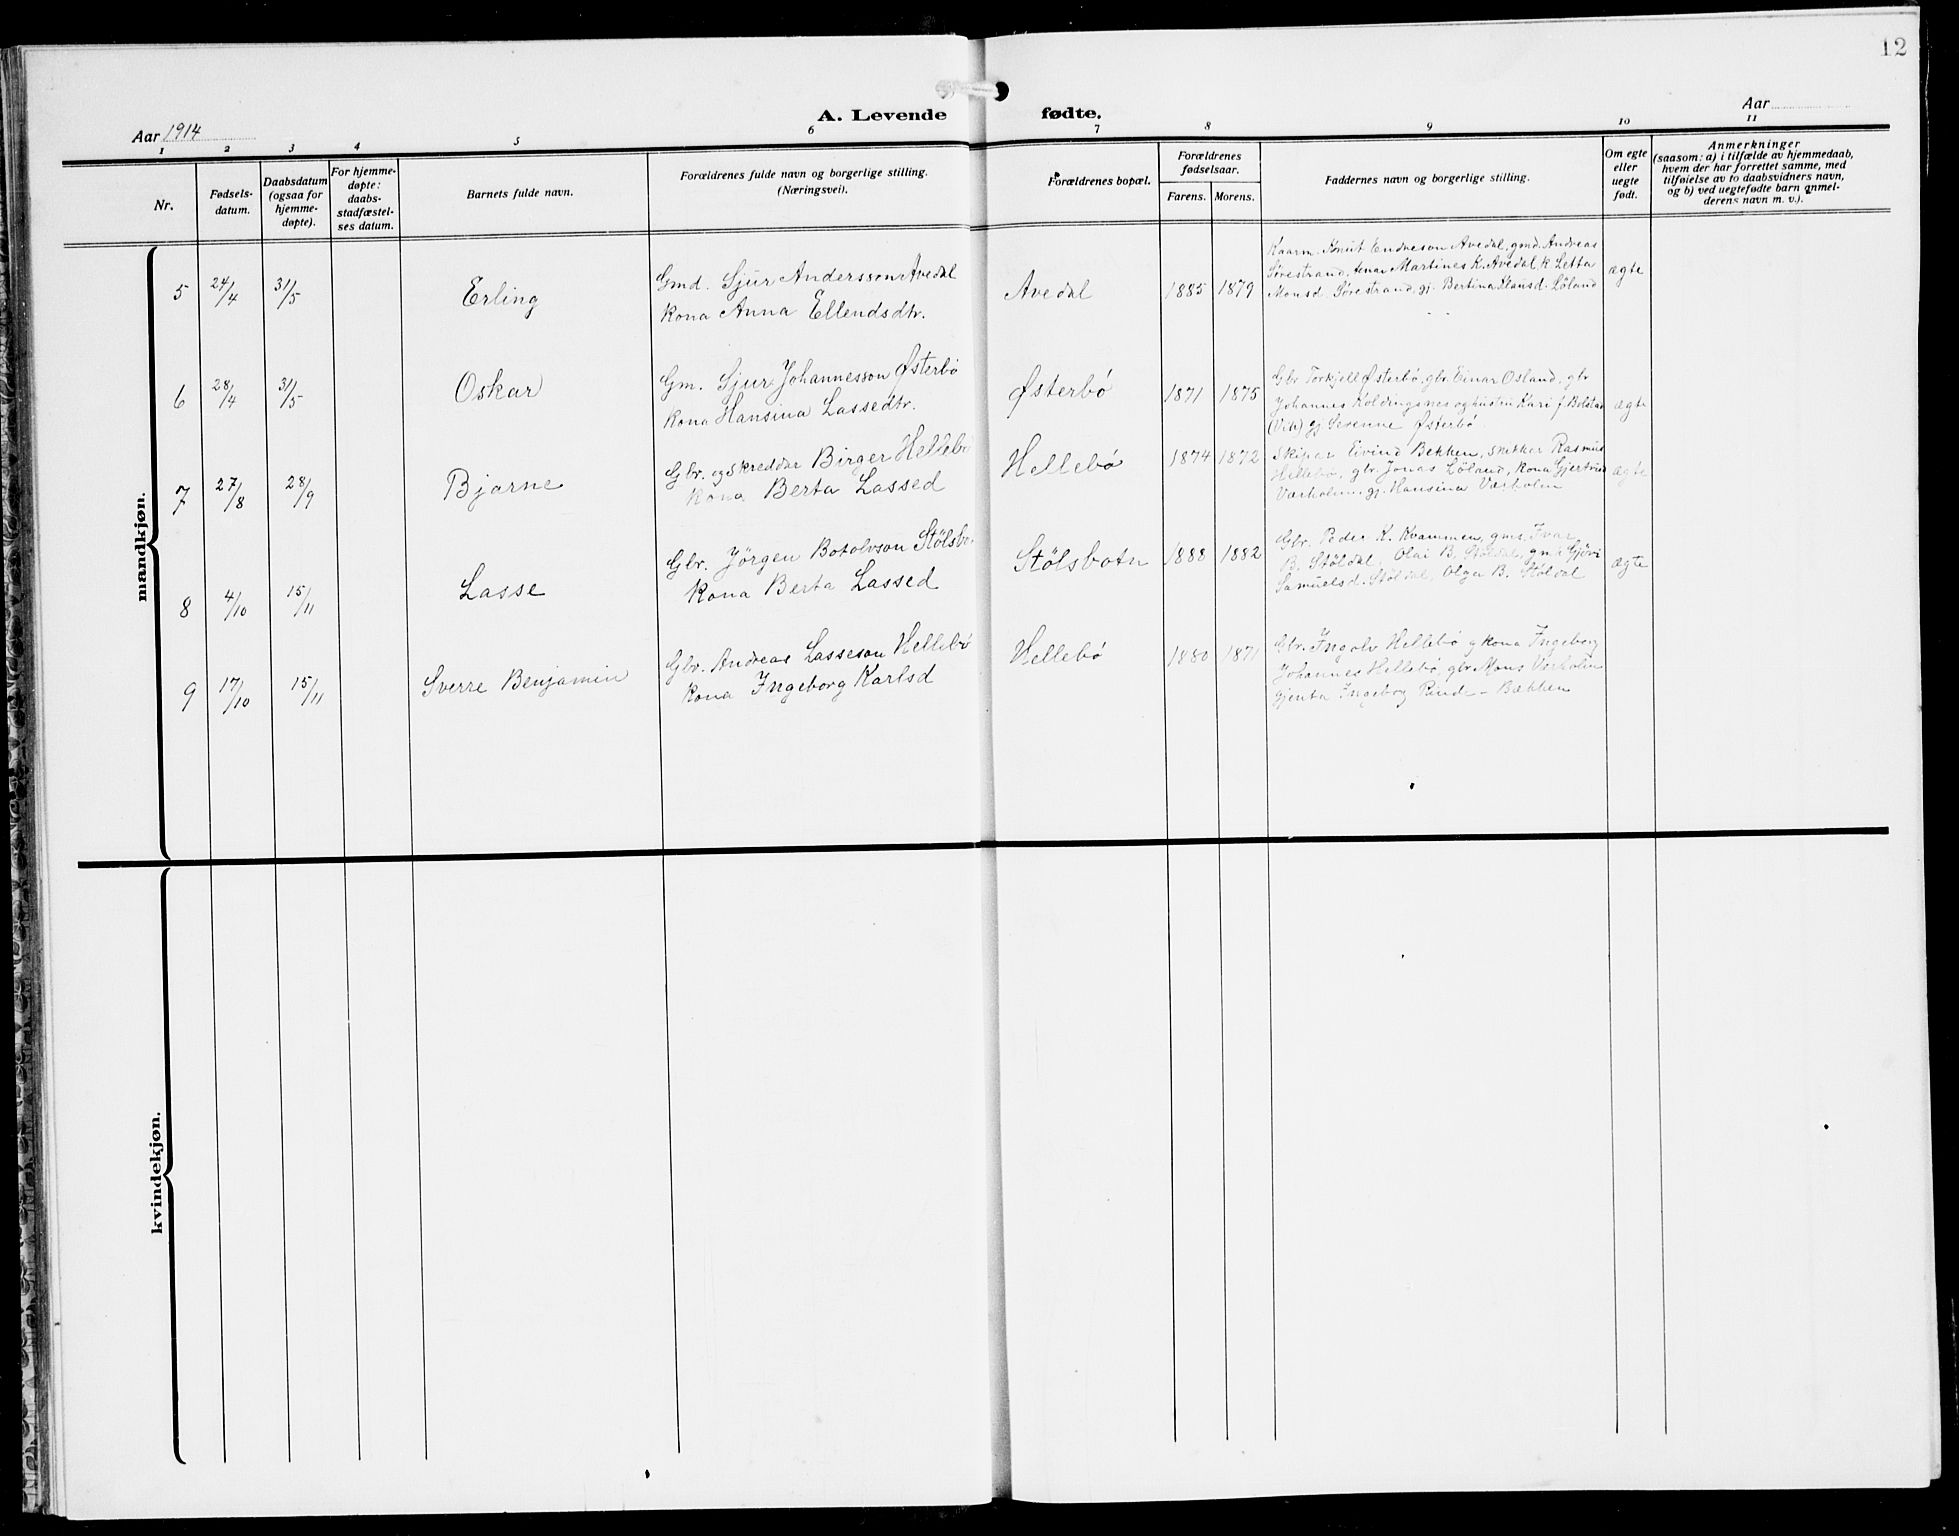 12
A. Levende fødte.
Aar 1914
Aar
1 2 3 4 5 6 7 8 9 10 11
Nr.
Fødsels-
datum.
Daabsdatum
(ogsaa for
hjemme-
døpte).
For hjemme-
døpte:
daabs-
stadfæstel-
ses datum.
Barnets fulde navn.
Forældrenes fulde navn og borgerlige stilling.
(Næringsvei).
Forældrenes bopæl.
Forældrenes
fødselsaar.
Farens. Morens.
Faddernes navn og borgerlige stilling.
Om egte
eller
uegte
født.
Anmerkninger
(saasom: a) i tilfælde av hjemmedaab,
hvem der har forrettet samme, med
tilføielse av to daabsvidners navn,
og b) ved uegtefødte barn anmel-
derens navn m. v.).
mandkjøn.
5 24/4 31/5 Erling
Gmd. Sjur Andersson Avedal
kona Anna Ellendsdtr.
Avedal 1885 1879
Kaarm. Knut Endreson Avedal, gmd. Andreas
Sørestrand, Martines K. Avedal, k. Letta
Monsd. Sørestrand, gj. Bertina Hansd. Löland
ægte
6 28/4 31/5 Oskar
Gm. Sjur Johannesson Østerbö
kona Hansina Lassedtr.
Østerbö 1871 1875
Gbr Torkjell Østerbö, gbr. Einar Osland, gbr
Johannes Koldingsnes og hustru Kari f. Bolstad
(Vik) gj Serenne Østerbö
ægte
7 27/8 28/9 Bjarne
Gbr. og skreddar Birger Hellebö
kona Berta Lassed
Hellebö 1874 1872
Skipar Eivind Bekken, snikkar Rasmus
Hellebö, gbr. Jonas Löland, kona Gjertrud
Værholm, gj. Hansina Værholm
ægte
8 4/10 15/11 Lasse
Gbr. Jörgen Botolvson Stölsbo.
kona Berta Lassed
Stölsbotn 1888 1882
Gbr. Peder K. Kvammen, gms. Ivar
B. Stöldal, Olai B. Stöldal, gmk Gjöri
Samuelsd. Stöldal, Olga B. Stöldal
ægte
9 17/10 15/11 Sverre Benjamin
Gbr. Andreas Lasseson Hellebö
kona Ingeborg Karlsd
Hellebö 1880 1871
Gbr. Ingolv Hellebö g kona Ingeborg
Johannes Hellebö, gbr. Mons Værholm
gjenta Ingeborg Rind - Bækken
kvindekjøn.